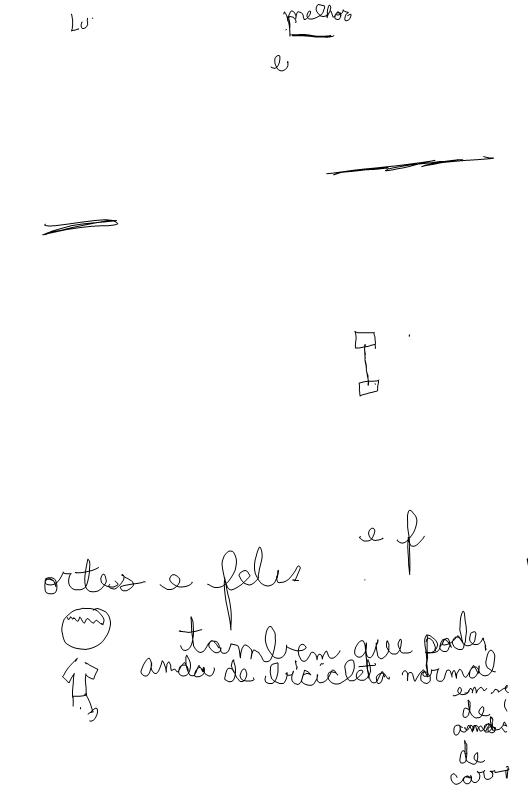 Lu
melhor
e
e f
ortes e felis
tambem que poder
anda de bicicleta normal
em ve
de
anda
de
carr